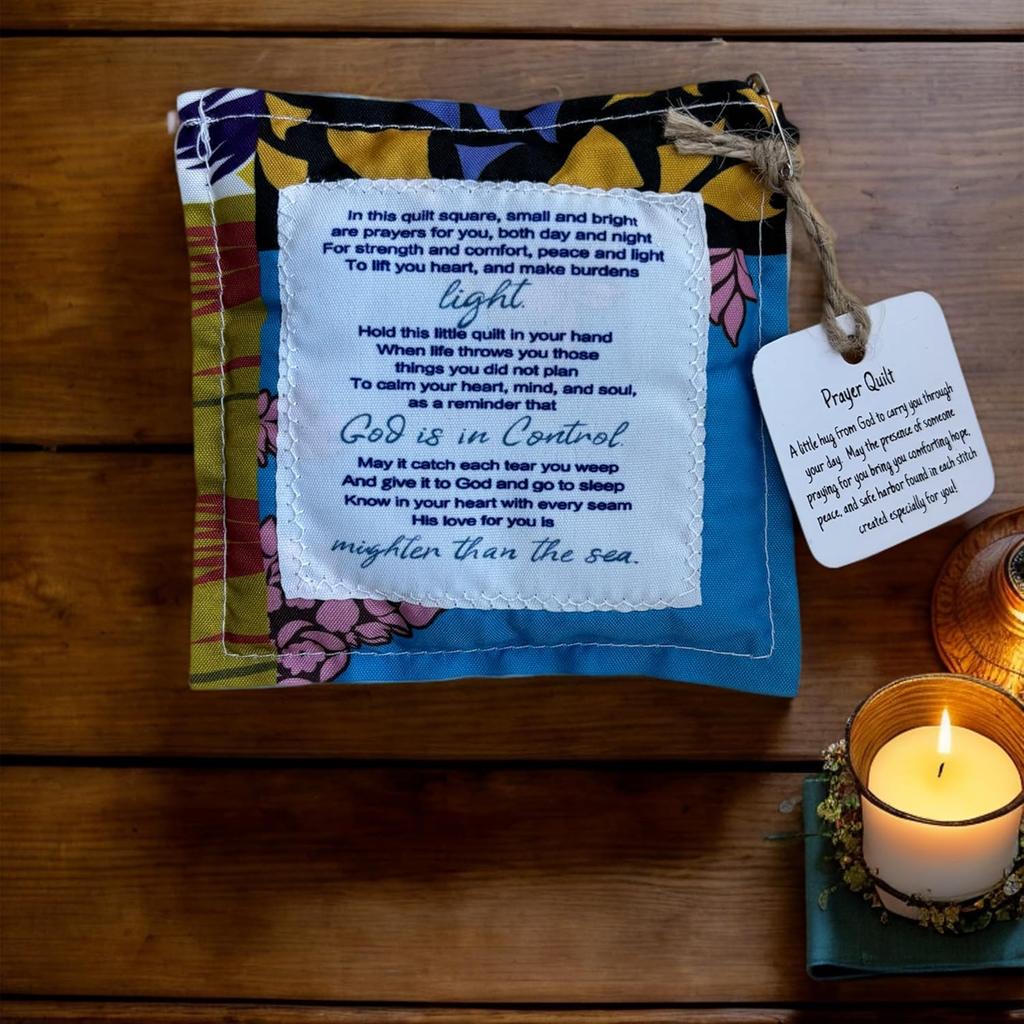 In this quilt square, small and bright
are prayers for you, both day and night
For strength and comfort, peace and light
To lift you heart, and make burdens
light.
Hold this little quilt in your hand
When life throws you those
things you did not plan
To calm your heart, mind, and soul,
as a reminder that
God is in Control.
May it catch each tear you weep
And give it to God and go to sleep
Know in your heart with every seam
His love for you is
mighter than the sea.
Prayer Quilt
A little hug from God to carry you through
your day. May the presence of someone
praying for you bring you comforting hope,
peace, and safe harbor found in each stitch
created especially for you!